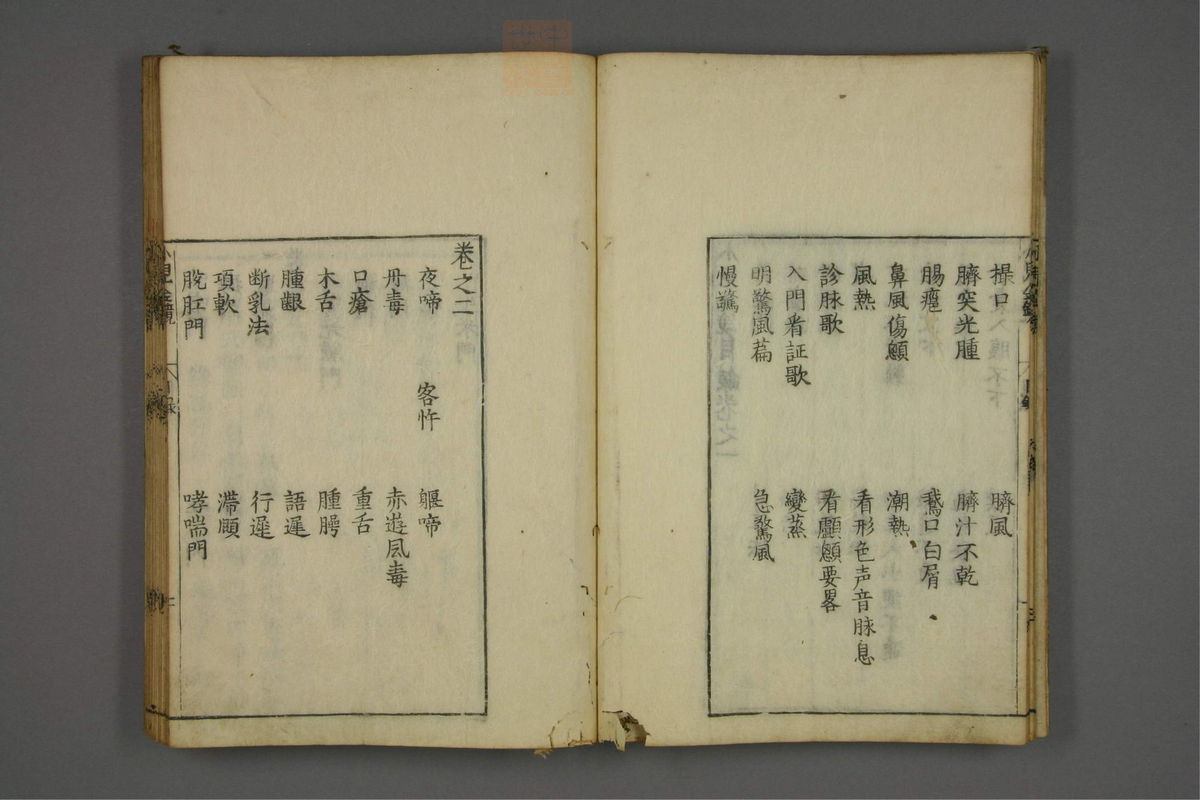 撮口 臍風
臍突光腫 臍汁不乾
腸癦 鵞口白屑
鼻風傷顖 潮熱
風熱 看形色声音脉息
診脉歌 看顱顖要畧
入門看証歌 變蒸
明驚風萹 急驚風
慢驚
卷之二
夜啼 客忤 軀啼
丹毒 赤遊風毒
口瘡 重舌
木舌 腫腭
腫齦 語遲
断乳法 行遲
項軟 滯頤
脫肛門 哮喘門